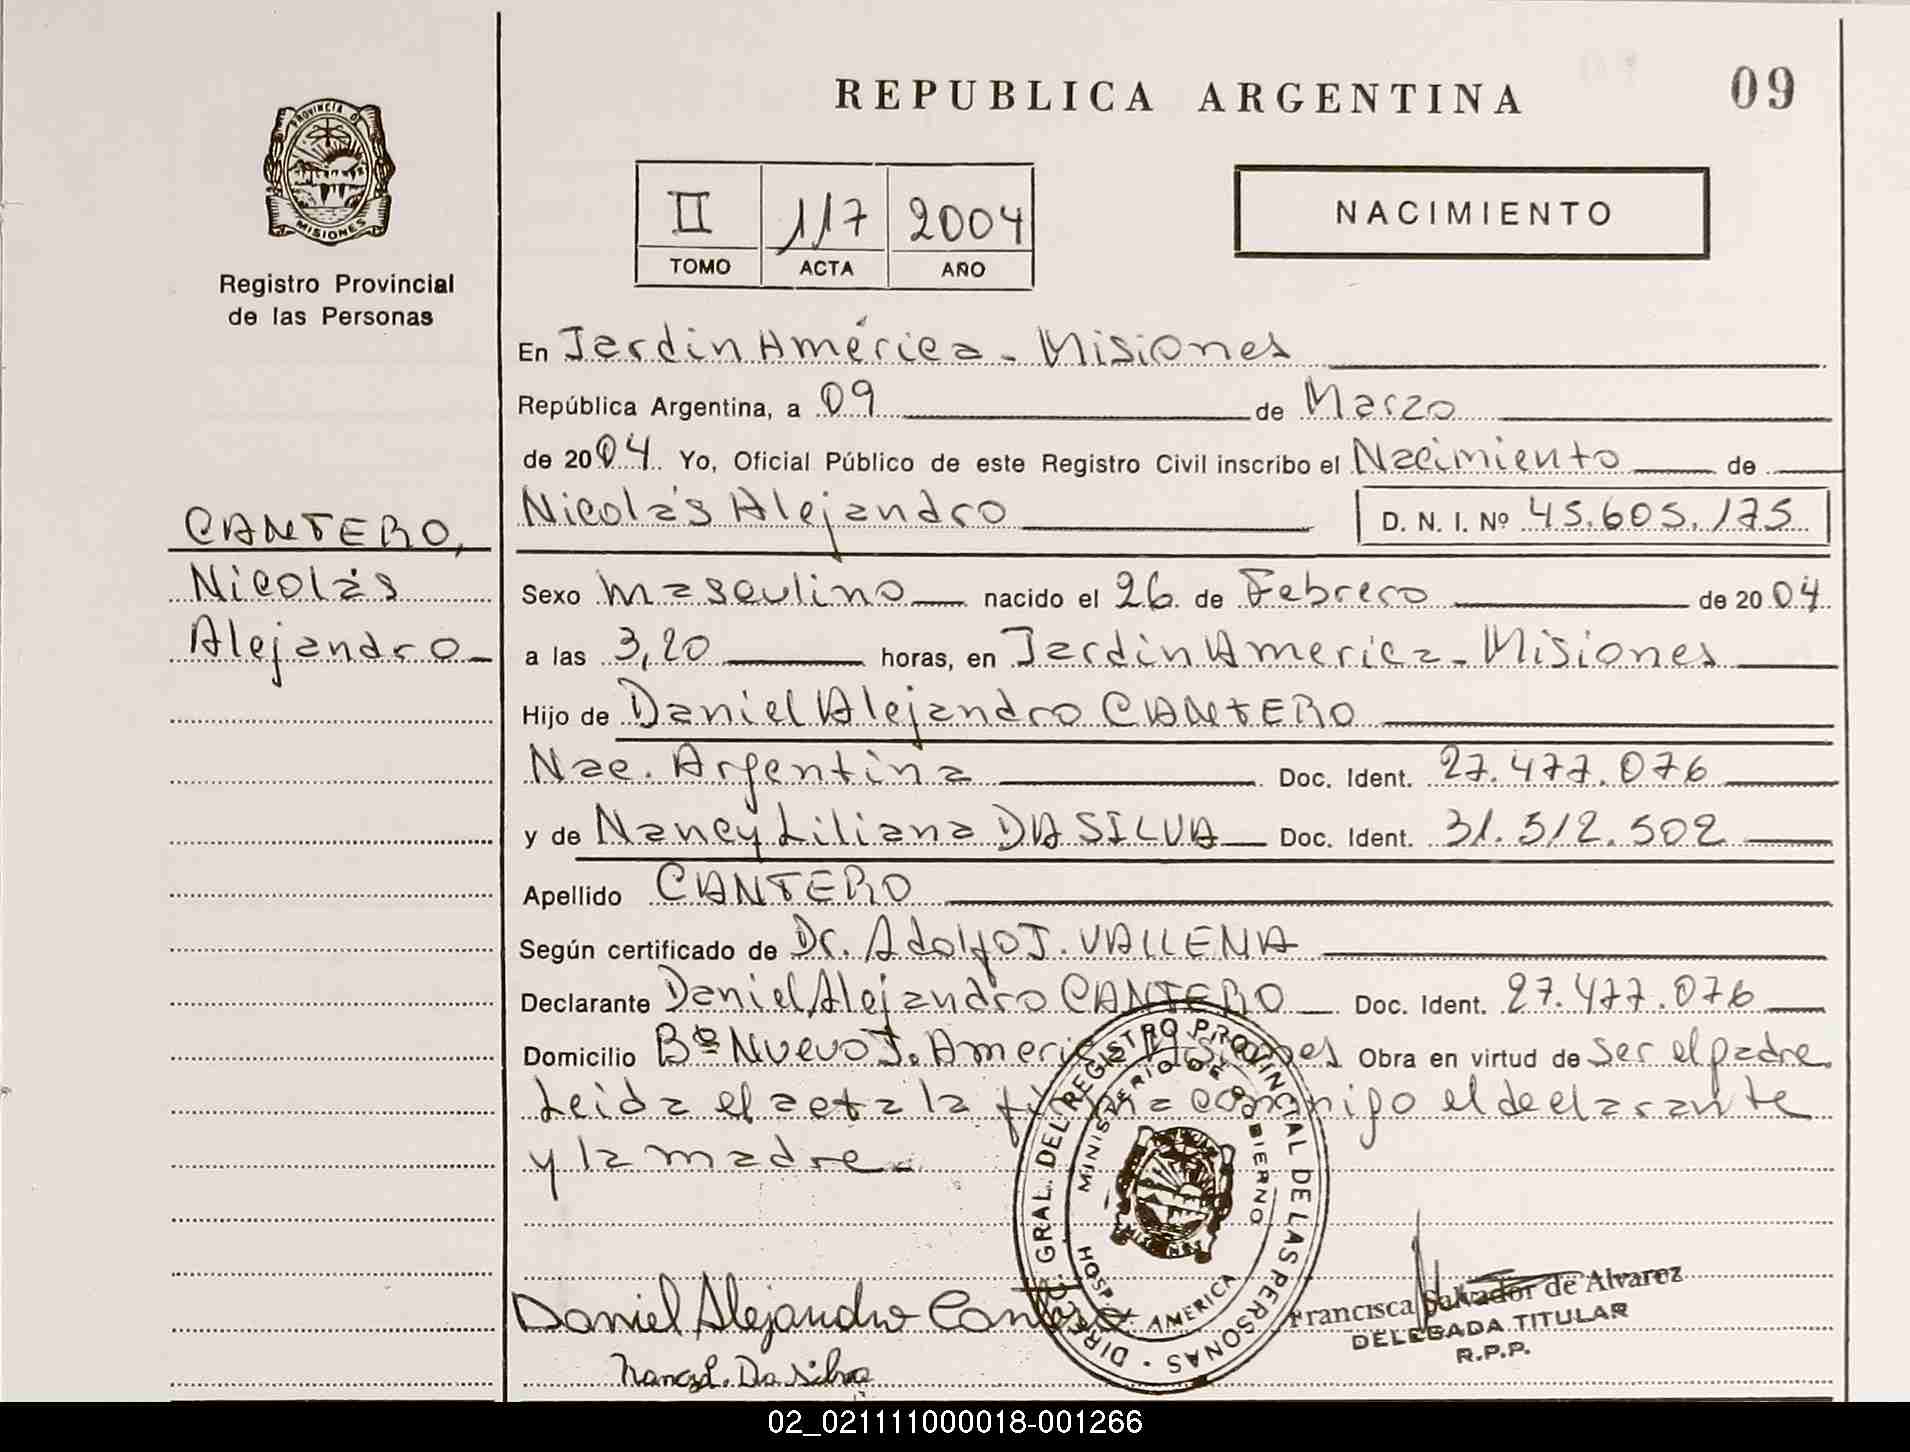 09
REPUBLICA ARGENTINA
PROVINCIA DE
MISIONES
Registro Provincial
de las Personas
II 117 2004
TOMO ACTA AÑO
NACIMIENTO
En Jardin América - Misiones
República Argentina, a 09 de Marzo
de 2004 Yo, Oficial Público de este Registro Civil inscribo el Nacimiento de
Nicolás Alejandro D. N. I. Nº 45.605.175
CANTERO,
Nicolás
Alejandro
Sexo Masculino nacido el 26 de Febrero de 2004
a las 3,20 horas, en Jardin America - Misiones
Hijo de Daniel Alejandro CANTERO
Nac. Argentina Doc. Ident. 27.477.076
y de Nancy Liliana DA SILVA Doc. Ident. 31.512.502
Apellido CANTERO
Según certificado de Dr. Adolfo J. VALLENA
Declarante Daniel Alejandro CANTERO Doc. Ident. 27.477.076
Domicilio Bº Nuevo J. America Misiones Obra en virtud de ser el padre.
Leida el acta la firma conmigo el declarante
y la madre.
DIREC. GRAL. DEL REGISTRO PROVINCIAL DE LAS PERSONAS
MINISTERIO DE GOBIERNO
HOSP. AMERICA
MISIONES
Daniel Alejandro Cantero
Nancy L. Da Silva
Francisca Salvador de Alvarez
DELEGADA TITULAR
R.P.P.
02_021111000018-001266